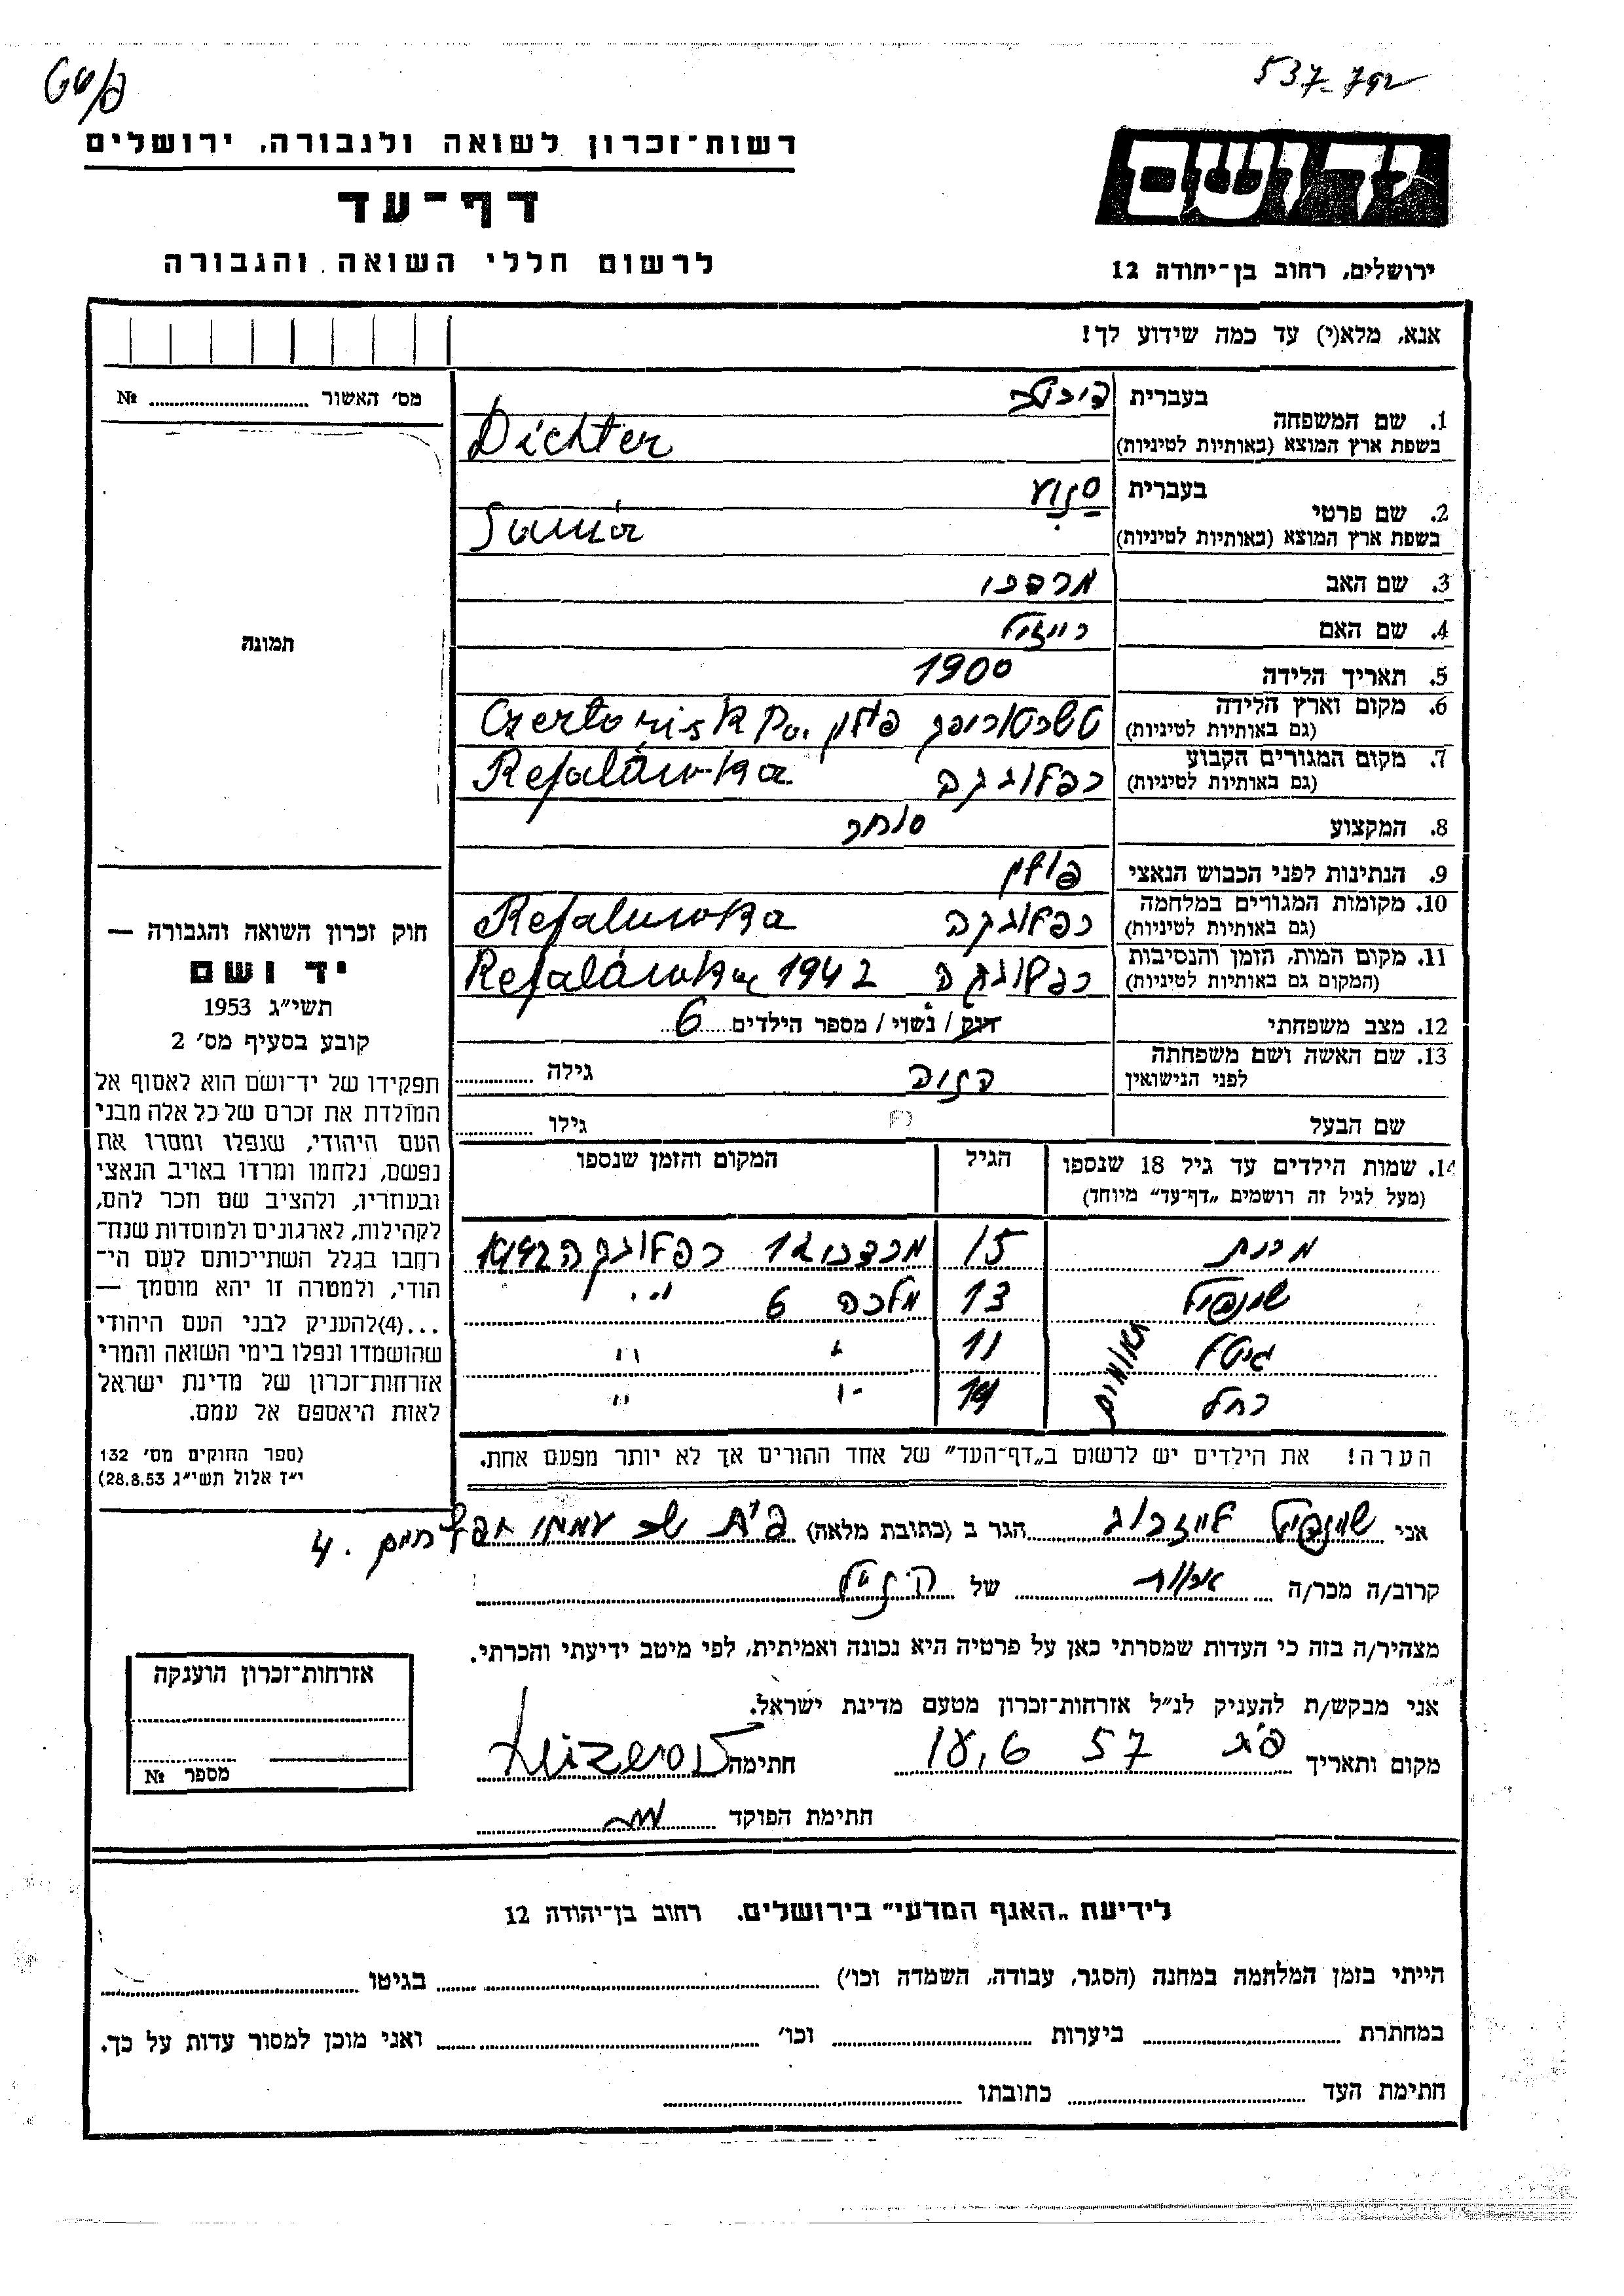 537-792
רשות־זכרון לשואה ולגבורה, ירושלים
דף־עד
לרשום חללי השואה והגבורה
יד ושם
ירושלים, רחוב בן־יהודה 12
אנא, מלא(י) עד כמה שידוע לך!
מס׳ האשור № 
1. שם המשפחה
בעברית
בשפת ארץ המוצא (באותיות לטיניות) Dichter
2. שם פרטי
בעברית
בשפת ארץ המוצא (באותיות לטיניות)
3. שם האב מרדכי
4. שם האם רייזיל
5. תאריך הלידה 1900
6. מקום וארץ הלידה (גם באותיות לטיניות) פולין Czertorisk Po.
7. מקום המגורים הקבוע (גם באותיות לטיניות) רפלובקה Refalówka
8. המקצוע סוחר
9. הנתינות לפני הכבוש הנאצי פולין
10. מקומות המגורים במלחמה (גם באותיות לטיניות) רפלובקה Refaluwka
11. מקום המות, הזמן והנסיבות (המקום גם באותיות לטיניות) רפלובקה Refalówka 1942
12. מצב משפחתי רוק / נשוי / מספר הילדים 6
13. שם האשה ושם משפחתה לפני הנישואין גילה
שם הבעל גילו
14. שמות הילדים עד גיל 18 שנספו (מעל לגיל זה רושמים „דף־עד״ מיוחד) הגיל המקום והזמן שנספו
15 מרדכי 12 רפלובקה 1942
13 מלכה 6 " "
תאומים
גיטל 11 " "
רחל 14 " "
הערה! את הילדים יש לרשום ב„דף־העד״ של אחד ההורים אך לא יותר מפעם אחת.
תמונה
חוק זכרון השואה והגבורה —
יד ושם
תשי״ג 1953
קובע בסעיף מס׳ 2
תפקידו של יד־ושם הוא לאסוף אל
המולדת את זכרם של כל אלה מבני
העם היהודי, שנפלו ומסרו את
נפשם, נלחמו ומרדו באויב הנאצי
ובעוזריו, ולהציב שם וזכר להם,
לקהילות, לארגונים ולמוסדות שנח־
רבו בגלל השתייכותם לעם הי־
הודי, ולמטרה זו יהא מוסמך —
...(4) להעניק לבני העם היהודי
שהושמדו ונפלו בימי השואה והמרי
אזרחות־זכרון של מדינת ישראל
לאות היאספם אל עמם.
(ספר החוקים מס׳ 132
י״ז אלול תשי״ג 28.8.53)
אני הגר ב (כתובת מלאה) 4
קרוב/ה מכר/ה של
מצהיר/ה בזה כי העדות שמסרתי כאן על פרטיה היא נכונה ואמיתית, לפי מיטב ידיעתי והכרתי.
אני מבקש/ת להעניק לנ״ל אזרחות־זכרון מטעם מדינת ישראל.
מקום ותאריך 57 חתימה
חתימת הפוקד
אזרחות־זכרון הוענקה
מספר №
לידיעת „האגף המדעי״ בירושלים, רחוב בן־יהודה 12
הייתי בזמן המלחמה במחנה (הסגר, עבודה, השמדה וכו׳) בגיטו
במחתרת ביערות וכו׳ ואני מוכן למסור עדות על כך.
חתימת העד כתובתו